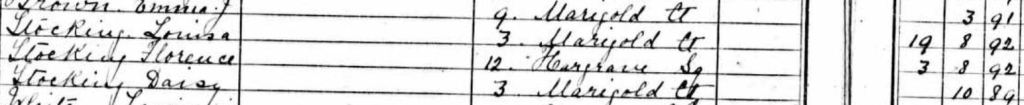 Brown Emma J 9. Marigold Ct 3 91
Stocking Louisa 3. Marigold Ct 19 8 92
Stocking Florence 12. Hargrave Sq 3 8 92
Stocking Daisy 3 Marigold Ct 10 89